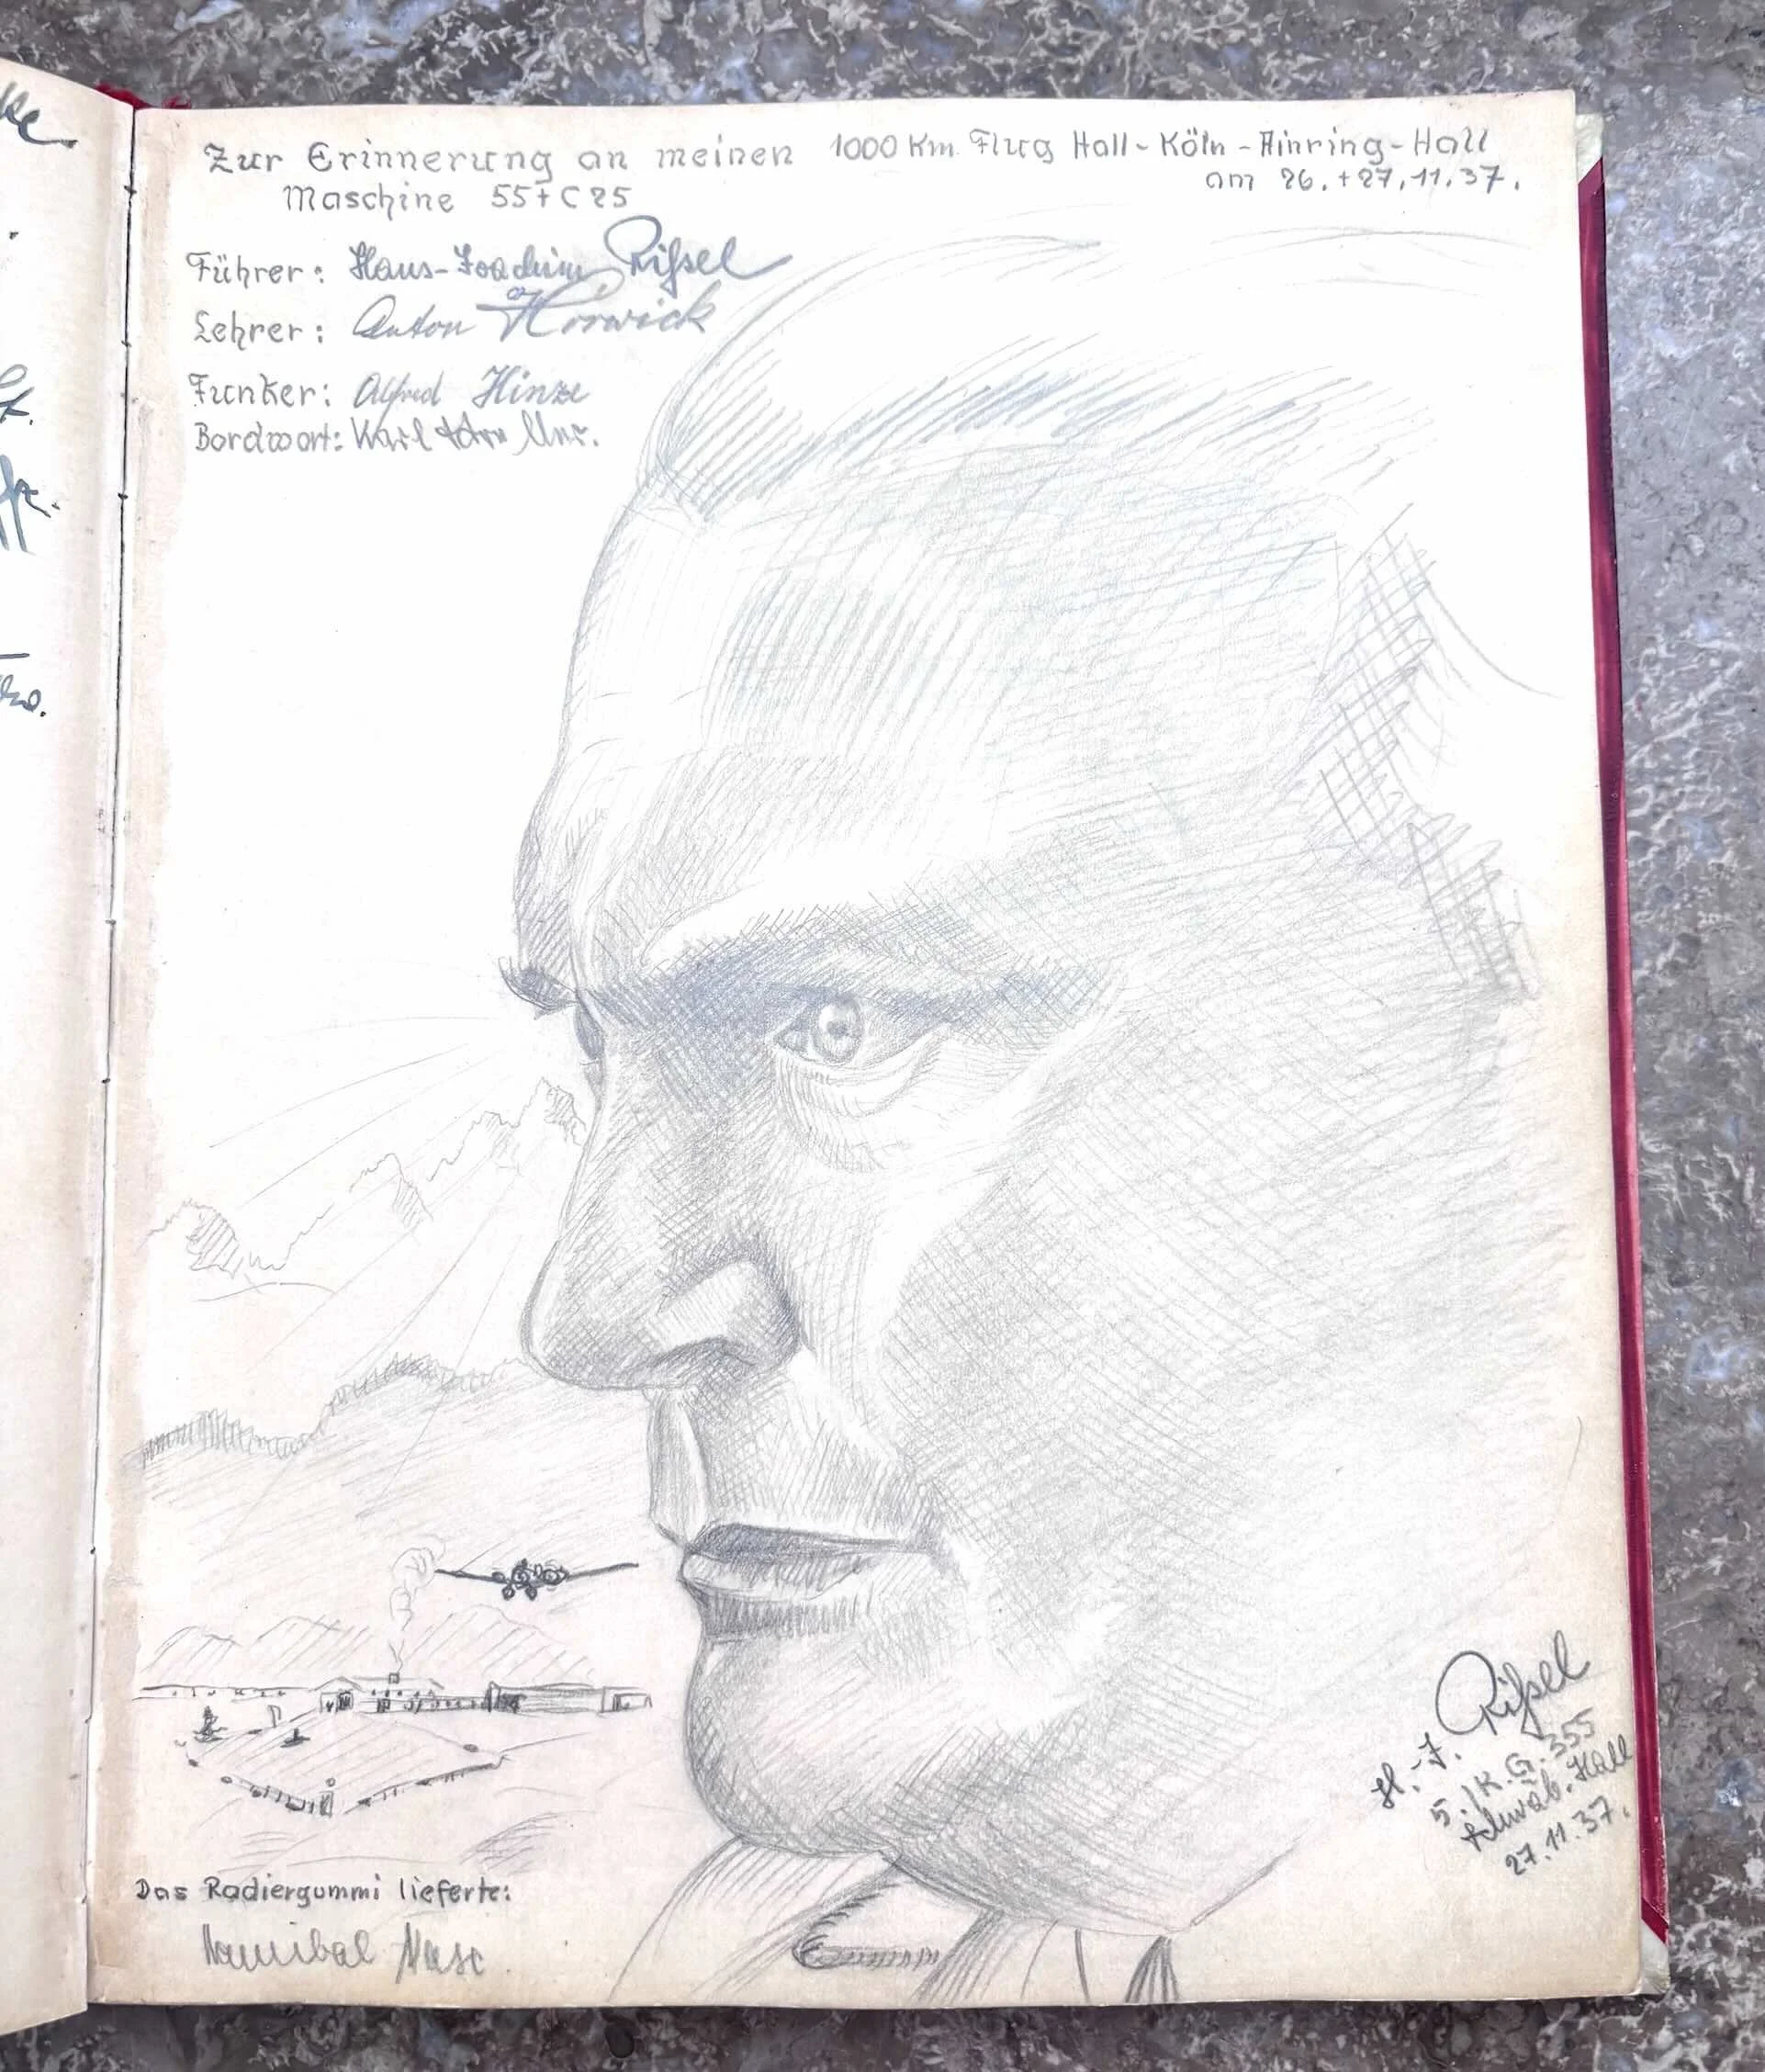 Zur Erinnerung an meinen 1000 Km. Flug Hall-Köln-Ainring-Hall
am 26.+27.11.37.
Maschine 55+C25
Führer: Hans-Joachim Rißel
Lehrer: Anton
Funker: Alfred Hinze
Bordwart: Karl
H.-J. Rißel
5./K.G.355
Schwäb. Hall
27.11.37.
Das Radiergummi lieferte:
Hannibal